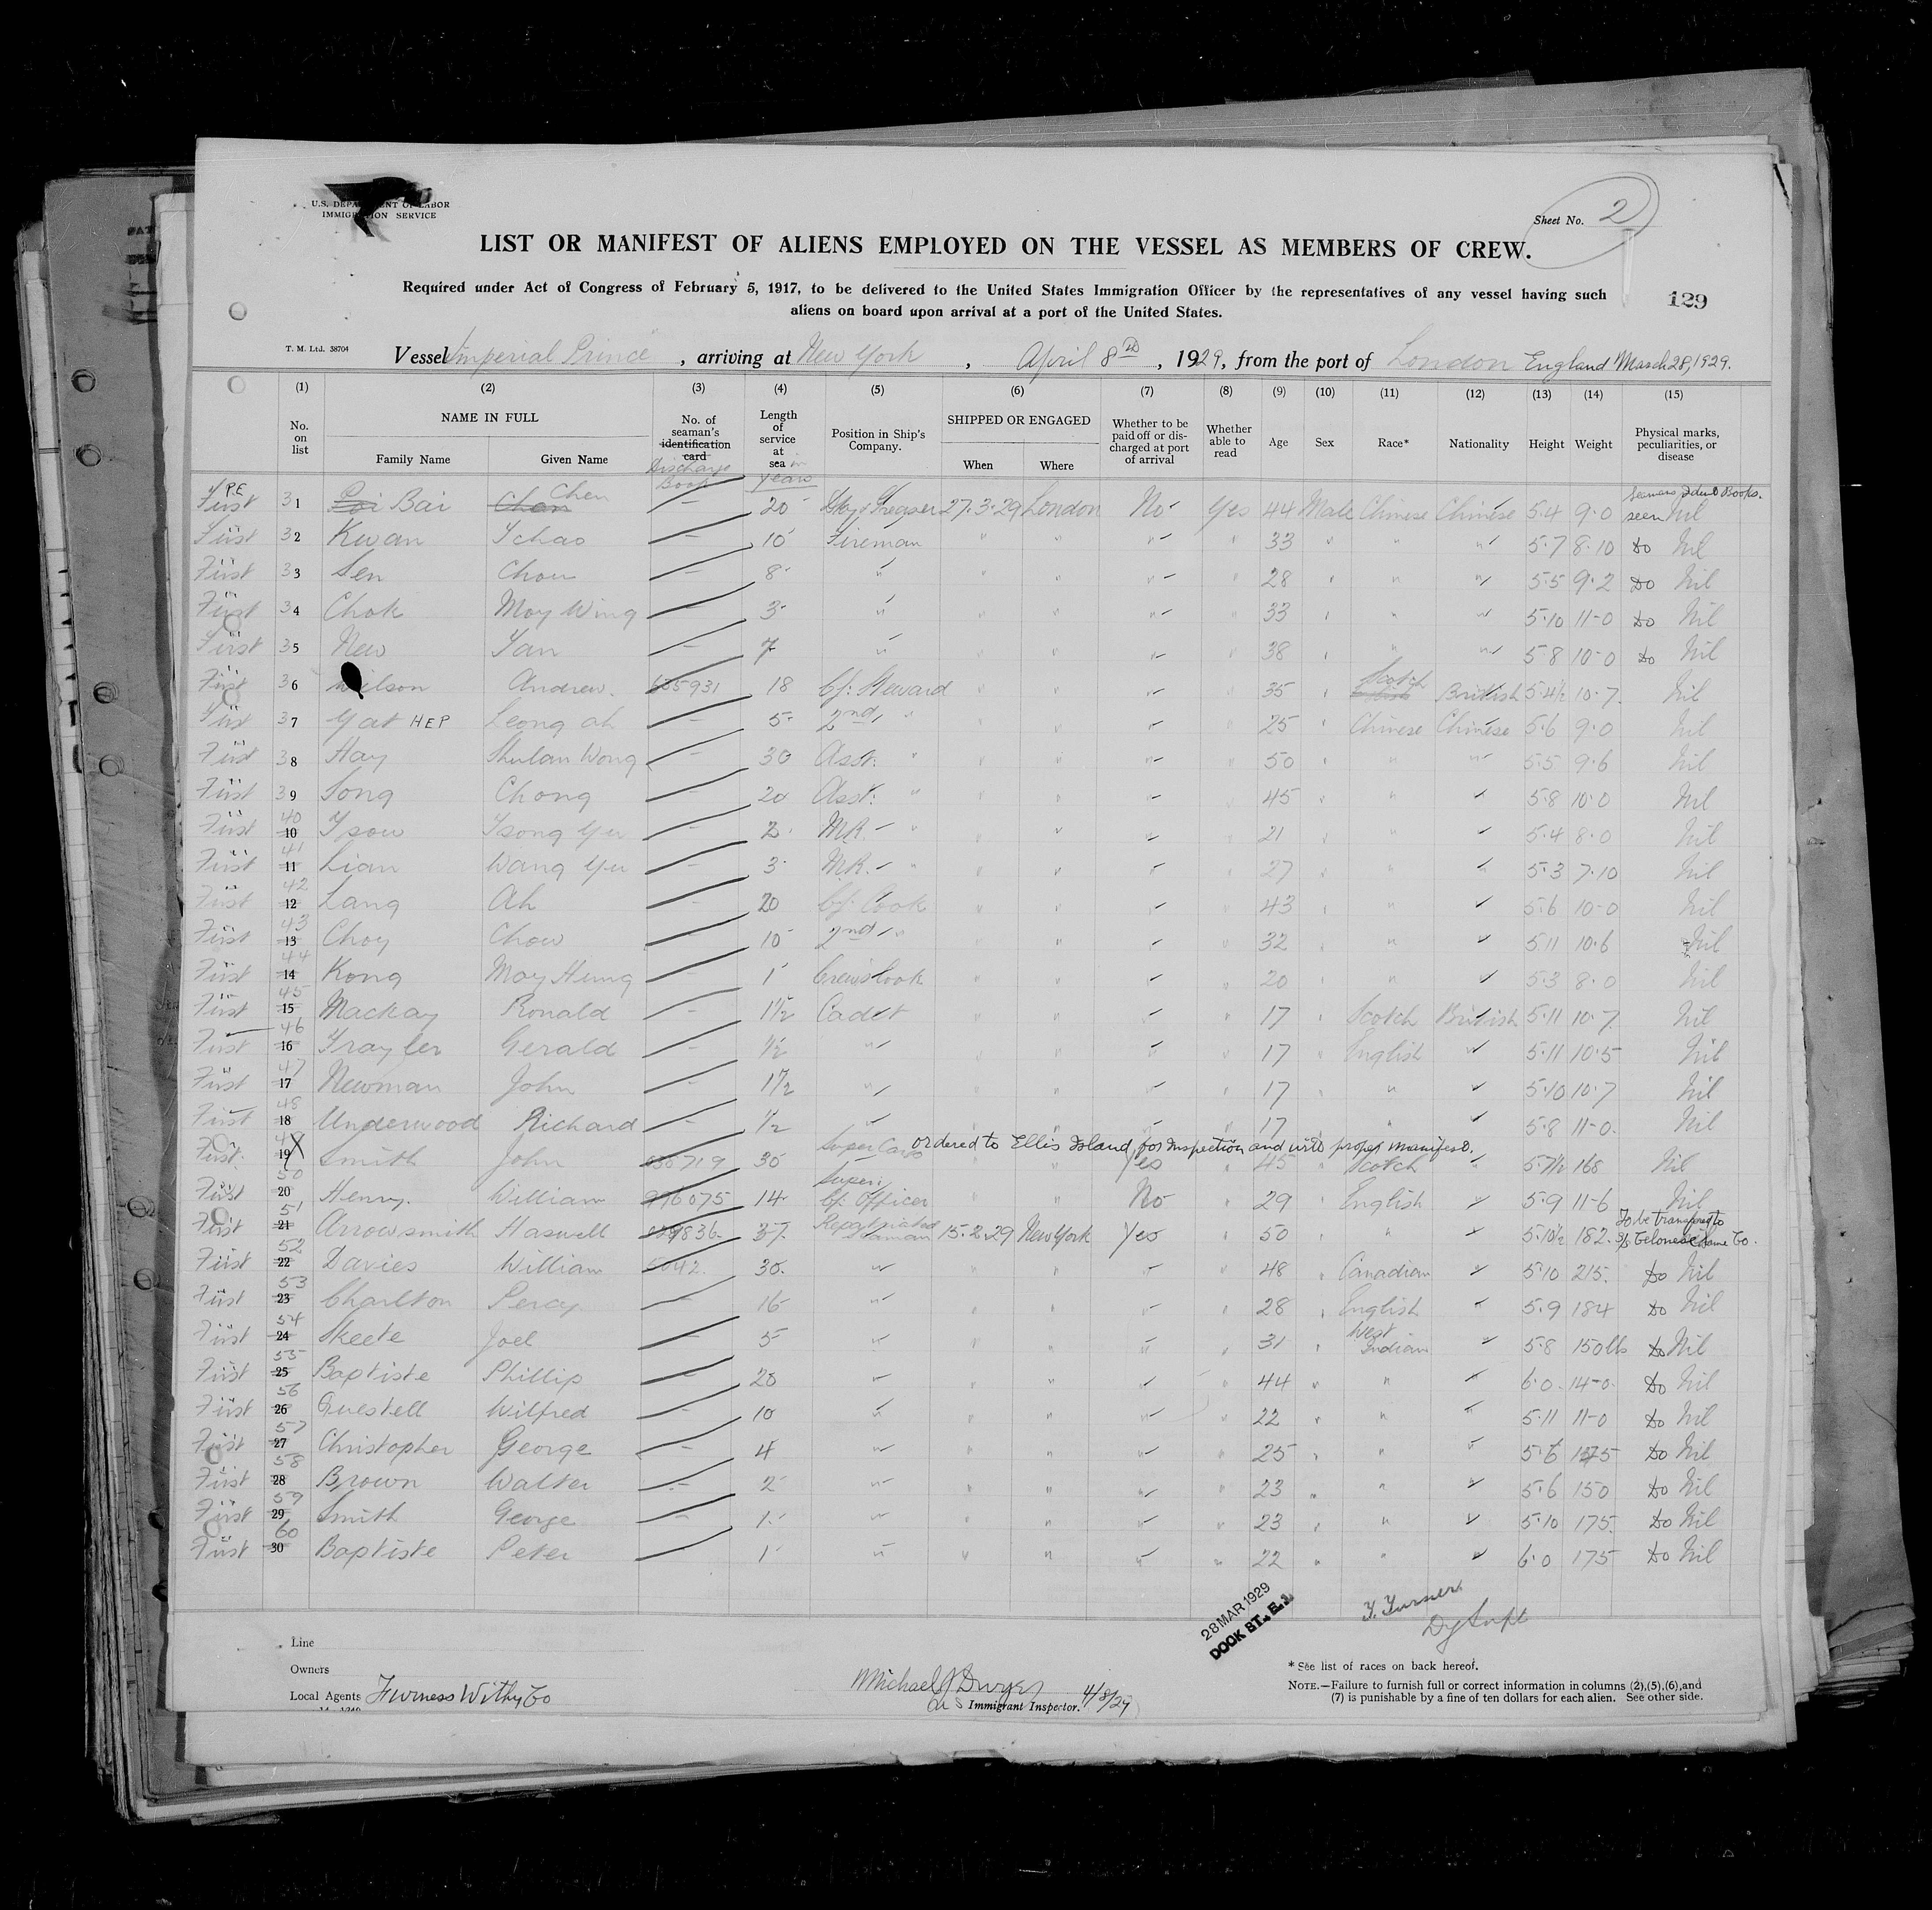 U.S. DEPARTMENT OF LABOR
IMMIGRATION SERVICE
Sheet No. 2
LIST OR MANIFEST OF ALIENS EMPLOYED ON THE VESSEL AS MEMBERS OF CREW.
Required under Act of Congress of February 5, 1917, to be delivered to the United States Immigration Officer by the representatives of any vessel having such
aliens on board upon arrival at a port of the United States.
129
T. M. Ltd. 38704
Vessel "Imperial Prince", arriving at New York, April 8th, 1929, from the port of London England March 28, 1929.
(1) (2) (3) (4) (5) (6) (7) (8) (9) (10) (11) (12) (13) (14) (15)
No. on list NAME IN FULL Family Name Given Name No. of seaman's identification card Discharge Book Length of service at sea in years Position in Ship's Company. SHIPPED OR ENGAGED When Where Whether to be paid off or discharged at port of arrival Whether able to read Age Sex Race* Nationality Height Weight Physical marks, peculiarities, or disease
First 31 Bai Chen — 20 27.3.29 London No Yes 44 Male Chinese Chinese 5.4 9.0 seen Nil
First 32 Kwan Ychao — 10 Fireman " " " " 33 " " " 5.7 8.10 Do Nil
First 33 Sen Chou — 8 " " " " " 28 " " " 5.5 9.2 Do Nil
First 34 Chok Moy Wing — 3 " " " " " 33 " " " 5.10 11-0 Do Nil
First 35 New Yan — 7 " " " " " 38 " " " 5.8 10-0 Do Nil
First 36 Wilson Andrew. 635931 18 Cf: Steward " " " " 35 " Scotch British 5.4½ 10.7. Nil
First 37 Yat HEP Leong ah — 5 2nd " " " " " 25 " Chinese Chinese 5.6 9.0 Nil
First 38 Hay Shulan Wong — 30 Asst: " " " " " 50 " " " 5.5 9.6 Nil
First 39 Song Chong — 20 Asst: " " " " " 45 " " " 5.8 10.0 Nil
First 40 10 Tsou Tsong Yu — 2 MR. " " " " " 21 " " " 5.4 8.0 Nil
First 41 11 Lian Wang Yu — 3 MR. " " " " " 27 " " " 5.3 7.10 Nil
First 42 12 Lang Ah — 20 Cf. Cook " " " " 43 " " " 5.6 10-0 Nil
First 43 13 Choy Chow — 10 2nd " " " " " 32 " " " 5.11 10.6 Nil
First 44 14 Kong Moy Hung — 1 Crew's Cook " " " " 20 " " " 5.3 8.0 Nil
First 45 15 Mackay Ronald — 1½ Cadet " " " " 17 " Scotch British 5.11 10.7. Nil
First 46 16 Trayler Gerald — ½ " " " " " 17 " English " 5.11 10.5 Nil
First 47 17 Newman John — 1½ " " " " " 17 " " " 5.10 10.7 Nil
First 48 18 Underwood Richard — ½ " " " " " 17 " " " 5.8 11-0. Nil
ordered to Ellis Island, for Inspection and with proper manifest.
First 49 19 Smith John 630719 30 Super Cargo Yes " 45 " Scotch " 5.7½ 168 Nil
First 50 20 Henry. William 976075 14 Super: Cf: Officer " " No " 29 " English " 5.9 11-6 Nil
First 51 21 Arrowsmith Haswell 37 Repatriated Seaman 15.2.29 New York Yes " 50 " " " 5.10½ 182. To be transferred to
First 52 22 Davies William 30. " " " " " 48 " Canadian " 5.10 215. Do Nil
First 53 23 Charlton Percy — 16 " " " " " 28 " English " 5.9 184 Do Nil
First 54 24 Skeete Joel — 5 " " " " " 31 " West Indian " 5.8 150 lbs Do Nil
First 55 25 Baptiste Phillip — 20 " " " " " 44 " " " 6.0. 14-0. Do Nil
First 56 26 Questell Wilfred — 10 " " " " " 22 " " " 5.11 11-0 Do Nil
First 57 27 Christopher George — 4 " " " " " 25 " " " 5.6 Do Nil
First 58 28 Brown Walter — 2 " " " " " 23 " " " 5.6 150 Do Nil
First 59 29 Smith George — 1 " " " " " 23 " " " 5.10 175. Do Nil
First 60 30 Baptiste Peter — 1 " " " " " 22 " " " 6.0 175 Do Nil
28 MAR 1929
DOCK ST. E.1
Y. Turner
Dy Supt
Line
Owners
Local Agents Furness Withy Co
Michael J Dwyer
U S Immigrant Inspector. 4/8/29
* See list of races on back hereof.
NOTE.—Failure to furnish full or correct information in columns (2), (5), (6), and
(7) is punishable by a fine of ten dollars for each alien. See other side.